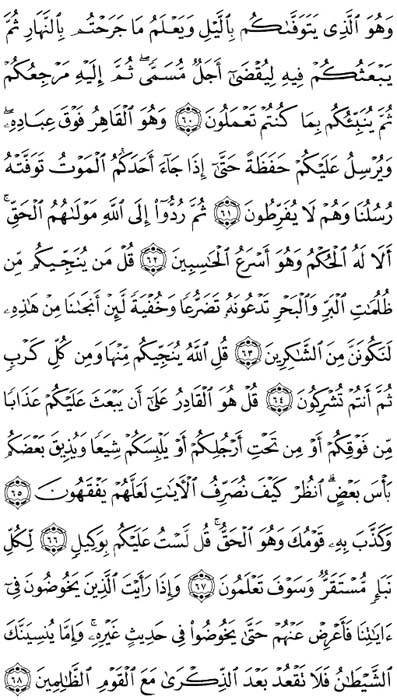 وَهُوَ ٱلَّذِي يَتَوَفَّىٰكُم بِٱلَّيۡلِ وَيَعۡلَمُ مَا جَرَحۡتُم بِٱلنَّهَارِ ثُمَّ
يَبۡعَثُكُمۡ فِيهِ لِيُقۡضَىٰٓ أَجَلٞ مُّسَمّٗىۖ ثُمَّ إِلَيۡهِ مَرۡجِعُكُمۡ
ثُمَّ يُنَبِّئُكُم بِمَا كُنتُمۡ تَعۡمَلُونَ ٦٠ وَهُوَ ٱلۡقَاهِرُ فَوۡقَ عِبَادِهِۦۖ
وَيُرۡسِلُ عَلَيۡكُمۡ حَفَظَةً حَتَّىٰٓ إِذَا جَآءَ أَحَدَكُمُ ٱلۡمَوۡتُ تَوَفَّتۡهُ
رُسُلُنَا وَهُمۡ لَا يُفَرِّطُونَ ٦١ ثُمَّ رُدُّوٓاْ إِلَى ٱللَّهِ مَوۡلَىٰهُمُ ٱلۡحَقِّۚ
أَلَا لَهُ ٱلۡحُكۡمُ وَهُوَ أَسۡرَعُ ٱلۡحَٰسِبِينَ ٦٢ قُلۡ مَن يُنَجِّيكُم مِّن
ظُلُمَٰتِ ٱلۡبَرِّ وَٱلۡبَحۡرِ تَدۡعُونَهُۥ تَضَرُّعٗا وَخُفۡيَةٗ لَّئِنۡ أَنجَىٰنَا مِنۡ هَٰذِهِۦ
لَنَكُونَنَّ مِنَ ٱلشَّٰكِرِينَ ٦٣ قُلِ ٱللَّهُ يُنَجِّيكُم مِّنۡهَا وَمِن كُلِّ كَرۡبٖ
ثُمَّ أَنتُمۡ تُشۡرِكُونَ ٦٤ قُلۡ هُوَ ٱلۡقَادِرُ عَلَىٰٓ أَن يَبۡعَثَ عَلَيۡكُمۡ عَذَابٗا
مِّن فَوۡقِكُمۡ أَوۡ مِن تَحۡتِ أَرۡجُلِكُمۡ أَوۡ يَلۡبِسَكُمۡ شِيَعٗا وَيُذِيقَ بَعۡضَكُم
بَأۡسَ بَعۡضٍۗ ٱنظُرۡ كَيۡفَ نُصَرِّفُ ٱلۡأٓيَٰتِ لَعَلَّهُمۡ يَفۡقَهُونَ ٦٥
وَكَذَّبَ بِهِۦ قَوۡمُكَ وَهُوَ ٱلۡحَقُّۚ قُل لَّسۡتُ عَلَيۡكُم بِوَكِيلٖ ٦٦ لِّكُلِّ
نَبَإٖ مُّسۡتَقَرّٞۚ وَسَوۡفَ تَعۡلَمُونَ ٦٧ وَإِذَا رَأَيۡتَ ٱلَّذِينَ يَخُوضُونَ فِيٓ
ءَايَٰتِنَا فَأَعۡرِضۡ عَنۡهُمۡ حَتَّىٰ يَخُوضُواْ فِي حَدِيثٍ غَيۡرِهِۦۚ وَإِمَّا يُنسِيَنَّكَ
ٱلشَّيۡطَٰنُ فَلَا تَقۡعُدۡ بَعۡدَ ٱلذِّكۡرَىٰ مَعَ ٱلۡقَوۡمِ ٱلظَّٰلِمِينَ ٦٨